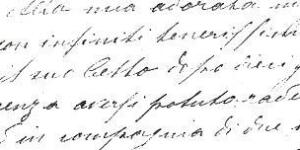 mia adorata
con infiniti tenerissimi
il suo letto dopo dieci
senza aversi potuto rade
in compagnia di due